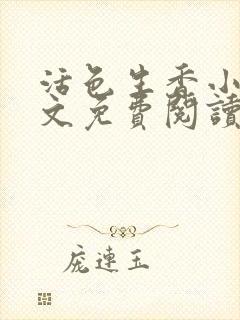 活色生香小
文免費閱讀
庞連玉